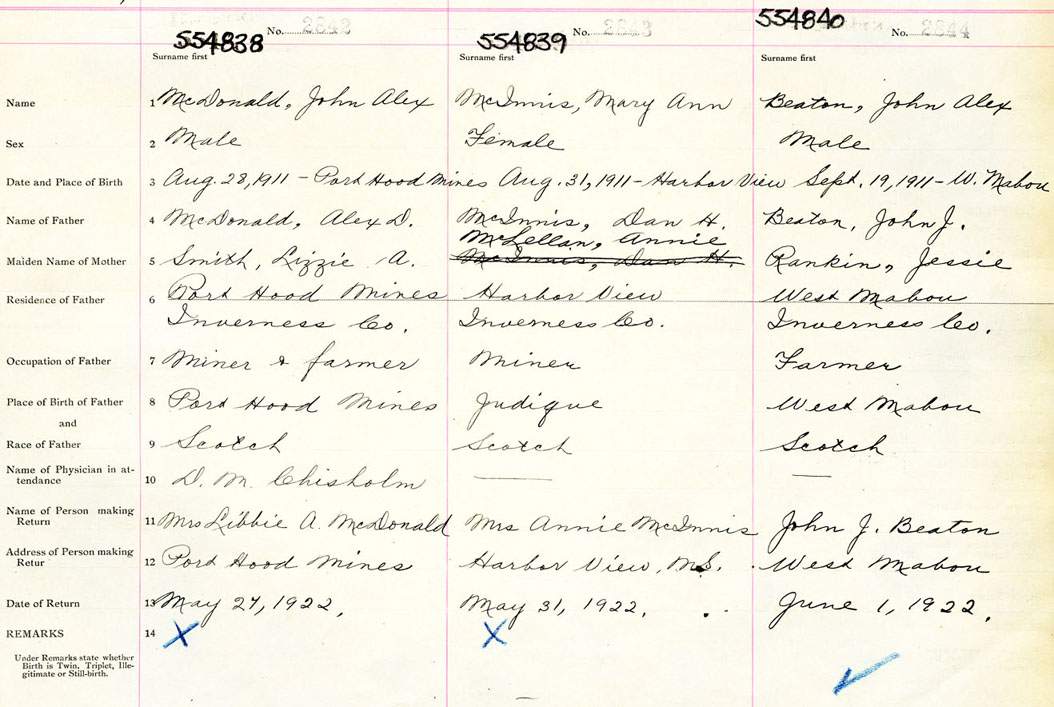 No. 2842 No. 2843 No. 2844
554838 554839 554840
Surname first Surname first Surname first
Name 1 McDonald, John Alex McInnis, Mary Ann Beaton, John Alex
Sex 2 Male Female Male
Date and Place of Birth 3 Aug. 28, 1911 - Port Hood Mines Aug. 31, 1911 - Harbor View Sept. 19, 1911 - W. Mabou
Name of Father 4 McDonald, Alex D. McInnis, Dan H. Beaton, John J.
McLellan, Annie
Maiden Name of Mother 5 Smith, Lizzie A. McInnis, Dan H. Rankin, Jessie
Residence of Father 6 Port Hood Mines Harbor View West Mabou
Inverness Co. Inverness Co. Inverness Co.
Occupation of Father 7 Miner & farmer Miner Farmer
Place of Birth of Father 8 Port Hood Mines Judique West Mabou
and
Race of Father 9 Scotch Scotch Scotch
Name of Physician in at-
tendance 10 D. M. Chisholm
Name of Person making
Return 11 Mrs Libbie A. McDonald Mrs Annie McInnis John J. Beaton
Address of Person making
Retur 12 Port Hood Mines Harbor View, N.S. West Mabou
Date of Return 13 May 27, 1922. May 31, 1922. June 1, 1922.
REMARKS 14 X X
Under Remarks state whether
Birth is Twin, Triplet, Ille-
gitimate or Still-birth.